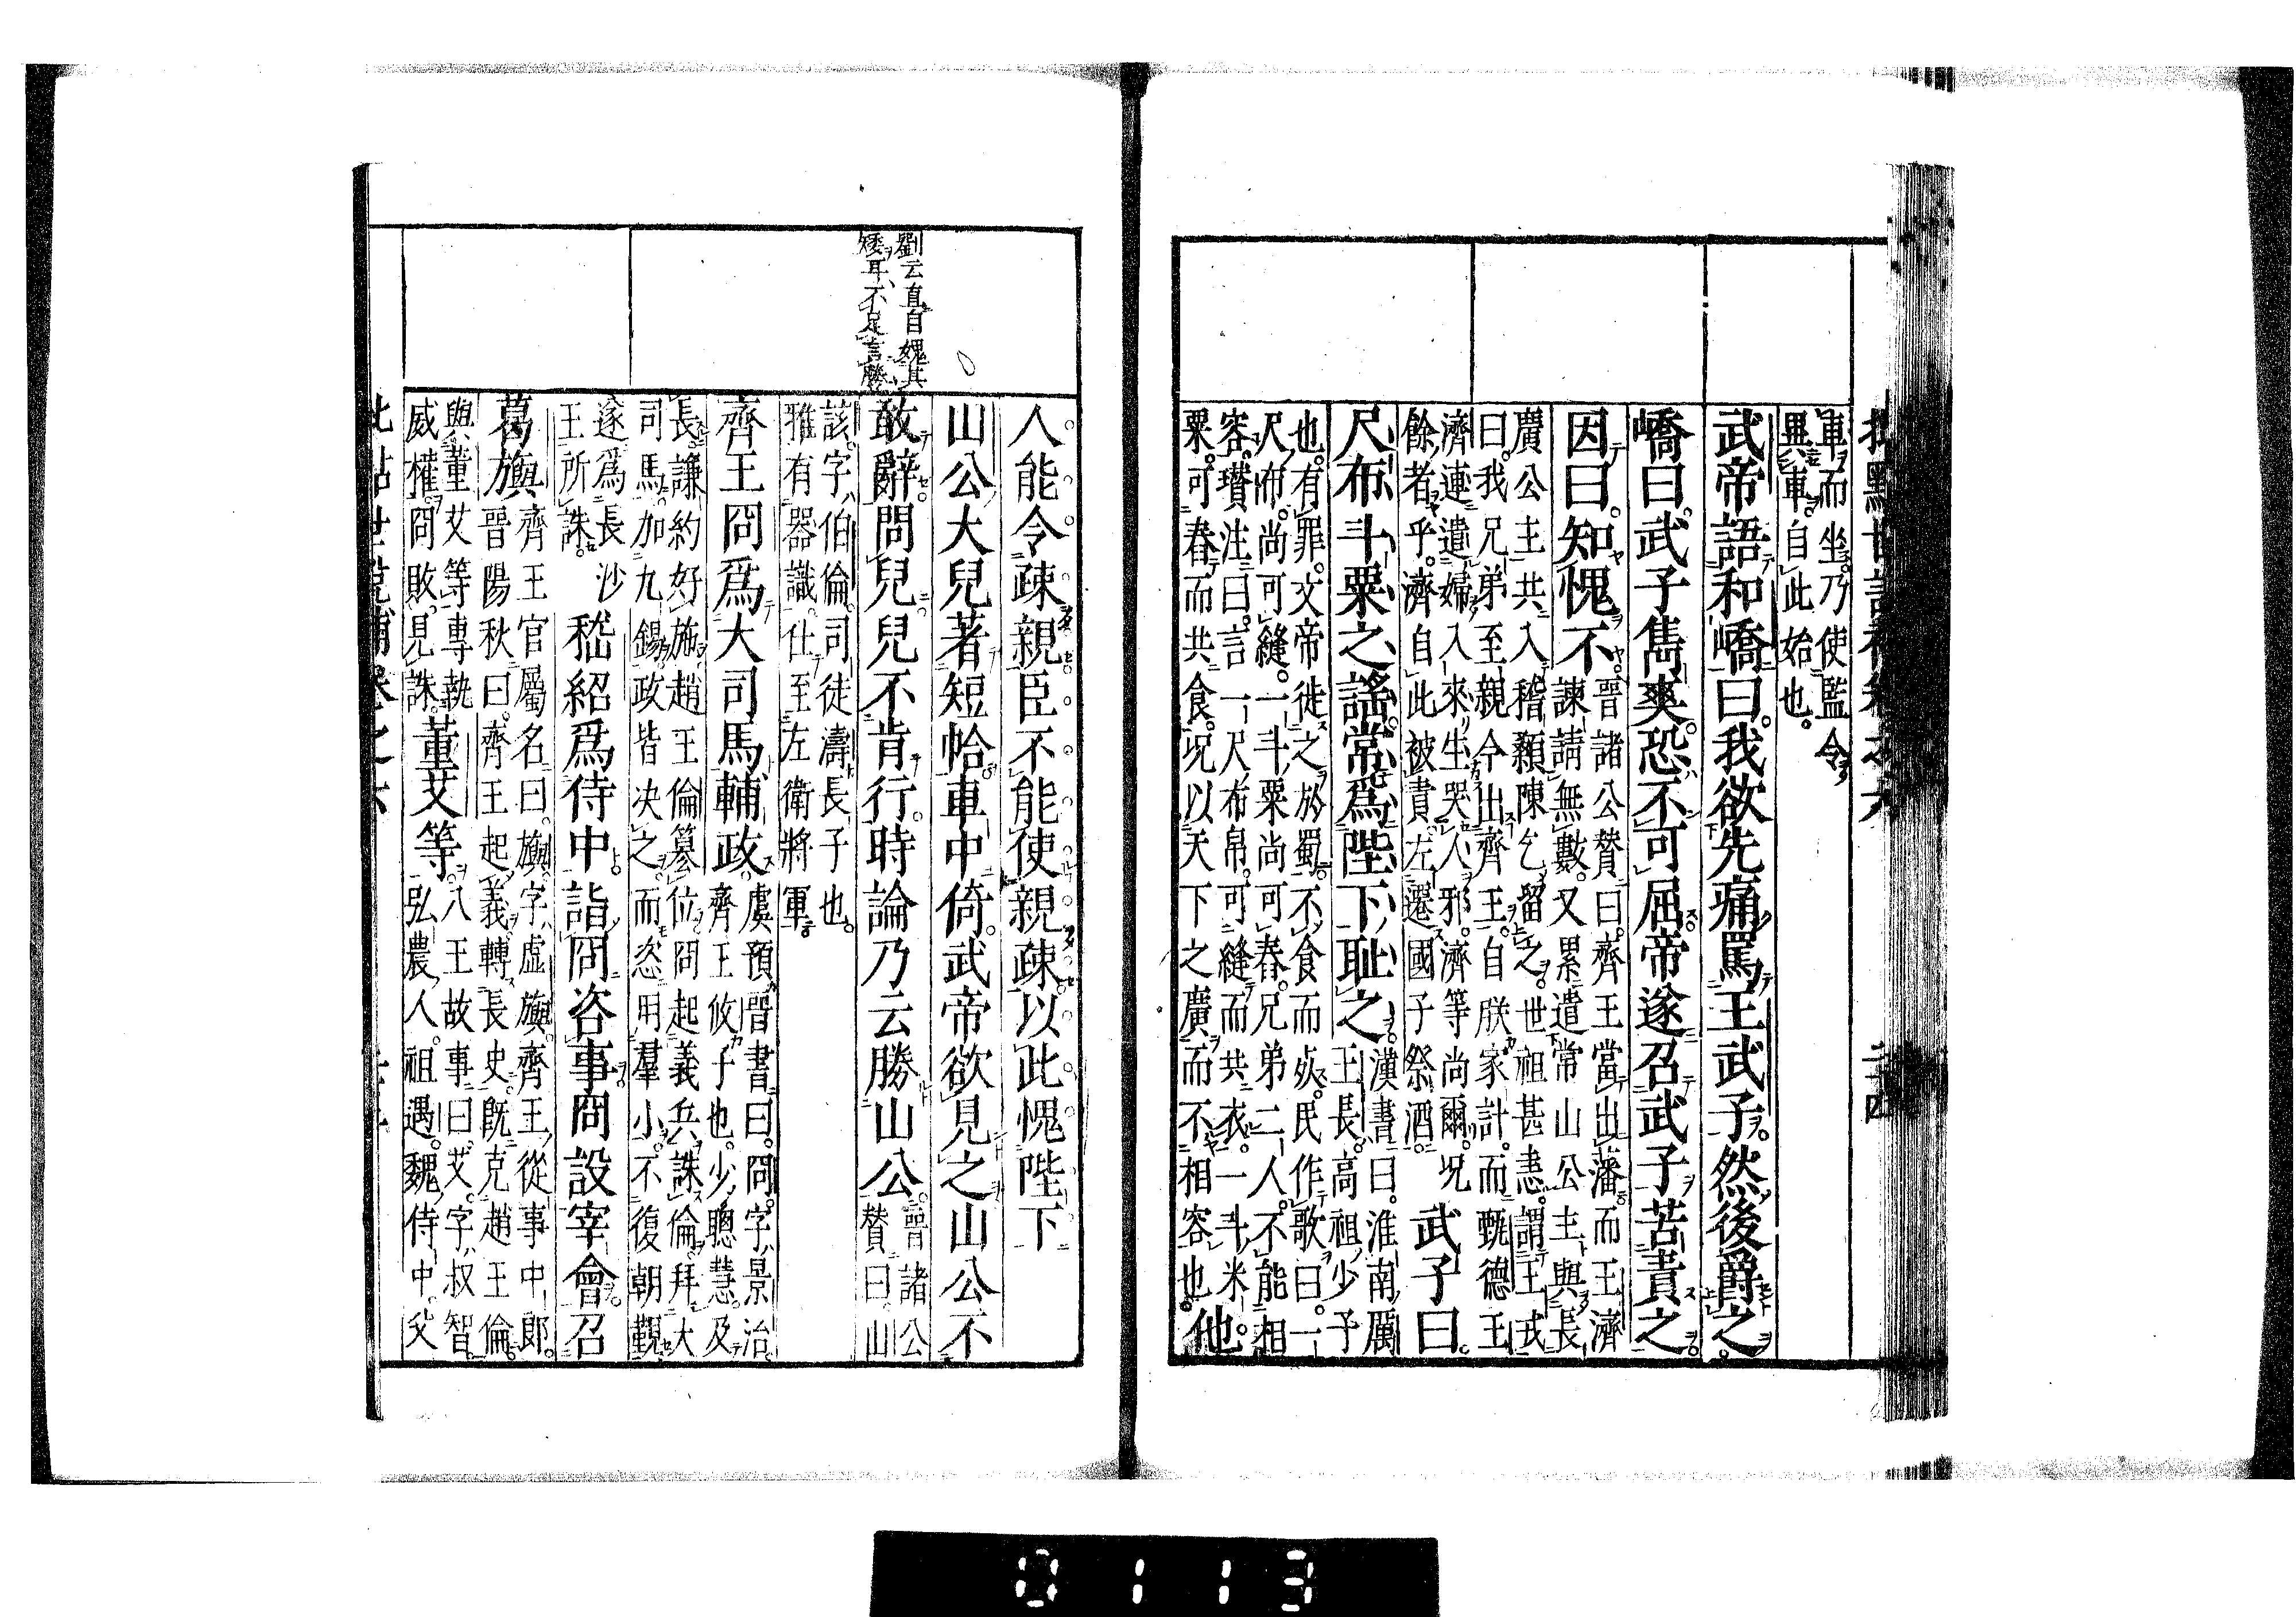 車而坐。乃使監令
異車。自此始也。
武帝語和嶠曰。我欲先痛罵王武子。然後爵之。
嶠曰。武子雋爽。恐不可屈。帝遂召武子苦責之。
因曰。知愧不。
晉諸公贊曰。齊王當出藩。而王濟
諫請無數。又累遣常山公主與長
廣公主共入稽顙陳乞留之。世祖甚恚。謂王戎
曰。我兄弟至親。今出齊王。自朕家計。而甄德王
濟連遣婦入來生哭人邪。濟等尚爾。况
餘者乎。濟自此被責。左遷國子祭酒。
武子曰。
尺布斗粟之謠。常爲陛下耻之。
漢書曰。淮南厲
王長。高祖少子
也。有罪。文帝徙之於蜀。不食而死。民作歌曰。一
尺布。尚可縫。一斗粟。尚可舂。兄弟二人。不能相
容。瓚注曰。言一尺布帛。可縫而共衣。一斗米
粟。可舂而共食。况以天下之廣。而不相容也。
他
人能令疎親。臣不能使親疎。以此愧陛下
山公大兒著短帢。車中倚。武帝欲見之。山公不
敢辭。問兒。兒不肯行。時論乃云勝山公。
晉諸公
贊曰。山
該。字伯倫。司徒濤長子也。
雅有器識。仕至左衛將軍。
齊王冏爲大司馬輔政。
虞預晉書曰。冏。字景治。
齊王攸子也。少聰慧。及
長謙約好施。趙王倫篡位。冏起義兵誅倫。拜大
司馬。加九錫。政皆决之。而恣用羣小。不復朝覲。
遂爲長沙
王所誅。
嵇紹爲侍中。詣冏咨事。冏設宰會。召
葛旟
齊王官屬名曰。旟。字虛旟。齊王從事中郎。
晉陽秋曰。齊王起義。轉長史。旣克趙王倫。
與董艾等專執
威權。冏敗。見誅。
董艾等。
八王故事曰。艾。字叔智。
弘農人。祖遇。魏侍中。父
劉云直自媿其
矮耳、不足言勝
0113